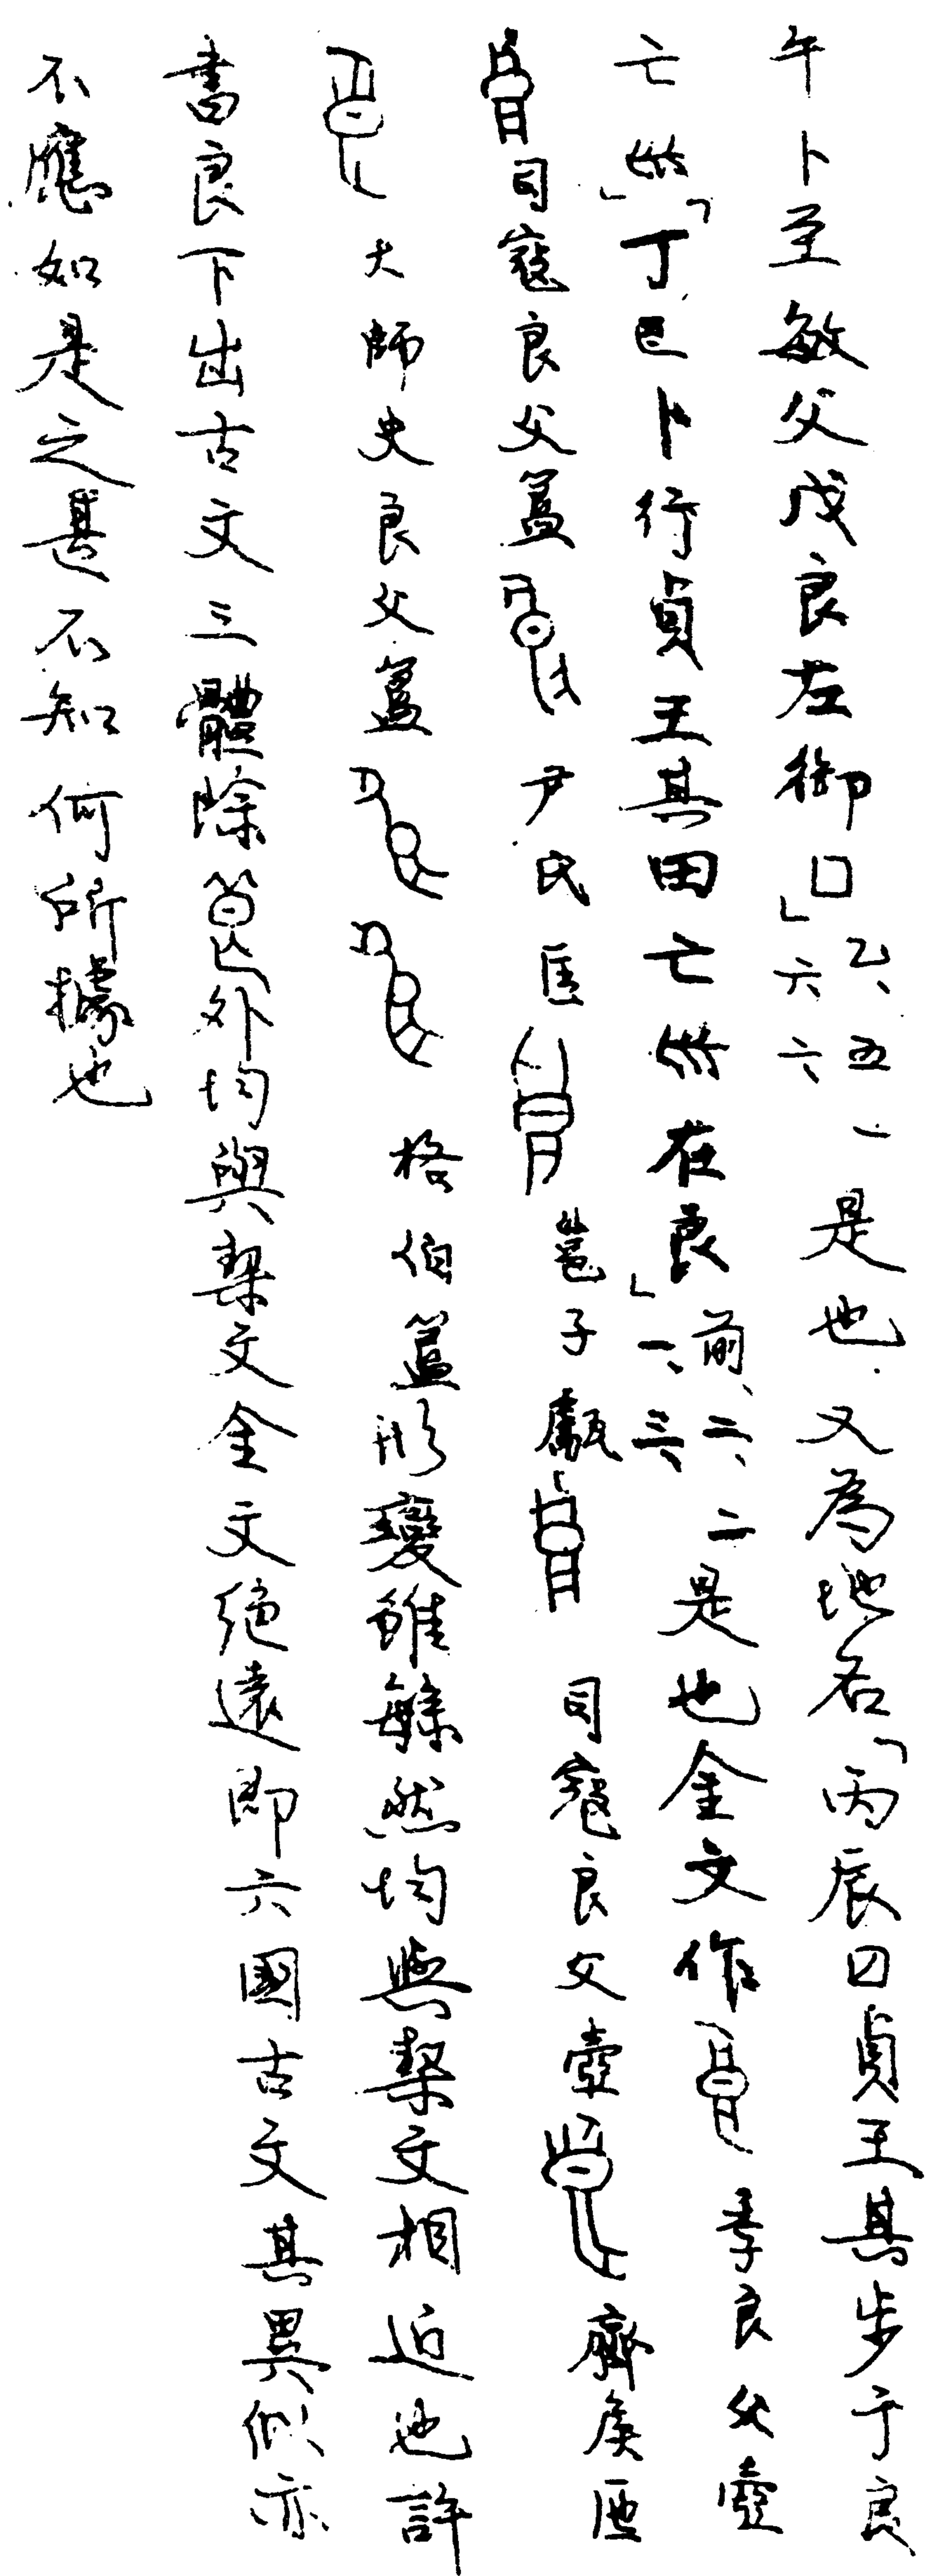 午卜至敏父戊良左御囗」乙、五一六六是也又為地名「丙辰囗貞王其步于良
亡𡿧」「丁巳卜行貞王其田亡𡿧在良」前、二、二一、三、是也金文作季良父壺
司寇良父簋尹氏匡邕子甗司寇良父壺齊侯匜
大師史良父簋格伯簋形變雖緐然均與栔文相近也許
書良下出古文三體除𥃩外均與栔文金文絕遠即六國古文其異似亦
不應如是之甚不知何所據也